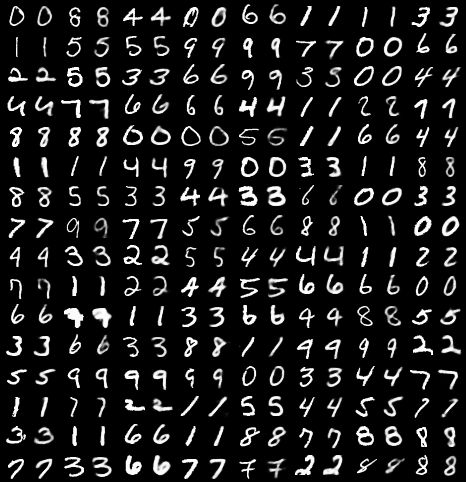 0 0 8 8 4 4 0 0 6 6 1 1 1 1 3 3
1 1 5 5 5 5 9 9 9 9 7 7 0 0 6 6
2 2 5 5 3 3 6 6 9 9 3 3 0 0 4 4
4 4 7 7 6 6 6 6 4 4 1 1 2 2 7 7
8 8 8 8 0 0 0 0 5 5 1 1 6 6 4 4
1 1 1 1 4 4 9 9 0 0 3 3 1 1 8 8
8 8 5 5 3 3 4 4 3 3 6 6 0 0 3 3
7 7 9 9 7 7 5 5 6 6 8 8 1 1 0 0
9 9 3 3 2 2 5 5 4 4 4 4 1 1 2 2
7 7 1 1 2 2 4 4 5 5 6 6 6 6 0 0
6 6 9 9 1 1 3 3 6 6 4 4 8 8 5 5
3 3 6 6 3 3 8 8 1 1 9 9 9 9 2 2
5 5 9 9 9 9 9 9 0 0 3 3 4 4 7 7
1 1 7 7 2 2 1 1 5 5 4 4 5 5 7 7
3 3 1 1 6 6 1 1 8 8 7 7 8 8 8 8
7 7 3 3 6 6 7 7 7 7 2 2 8 8 8 8